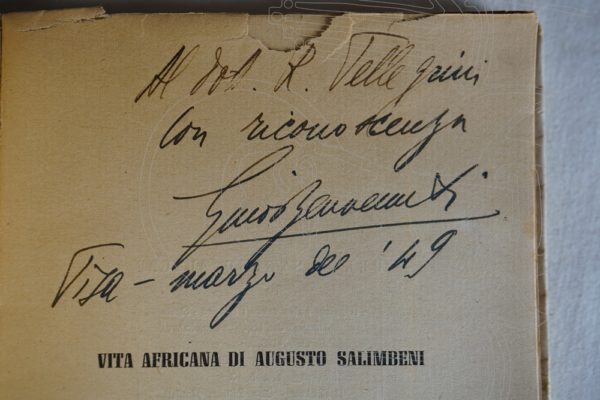 Al dot. R. Pellegrini
con riconoscenza
Guido Benvenuti
Pisa – marzo del '49
VITA AFRICANA DI AUGUSTO SALIMBENI